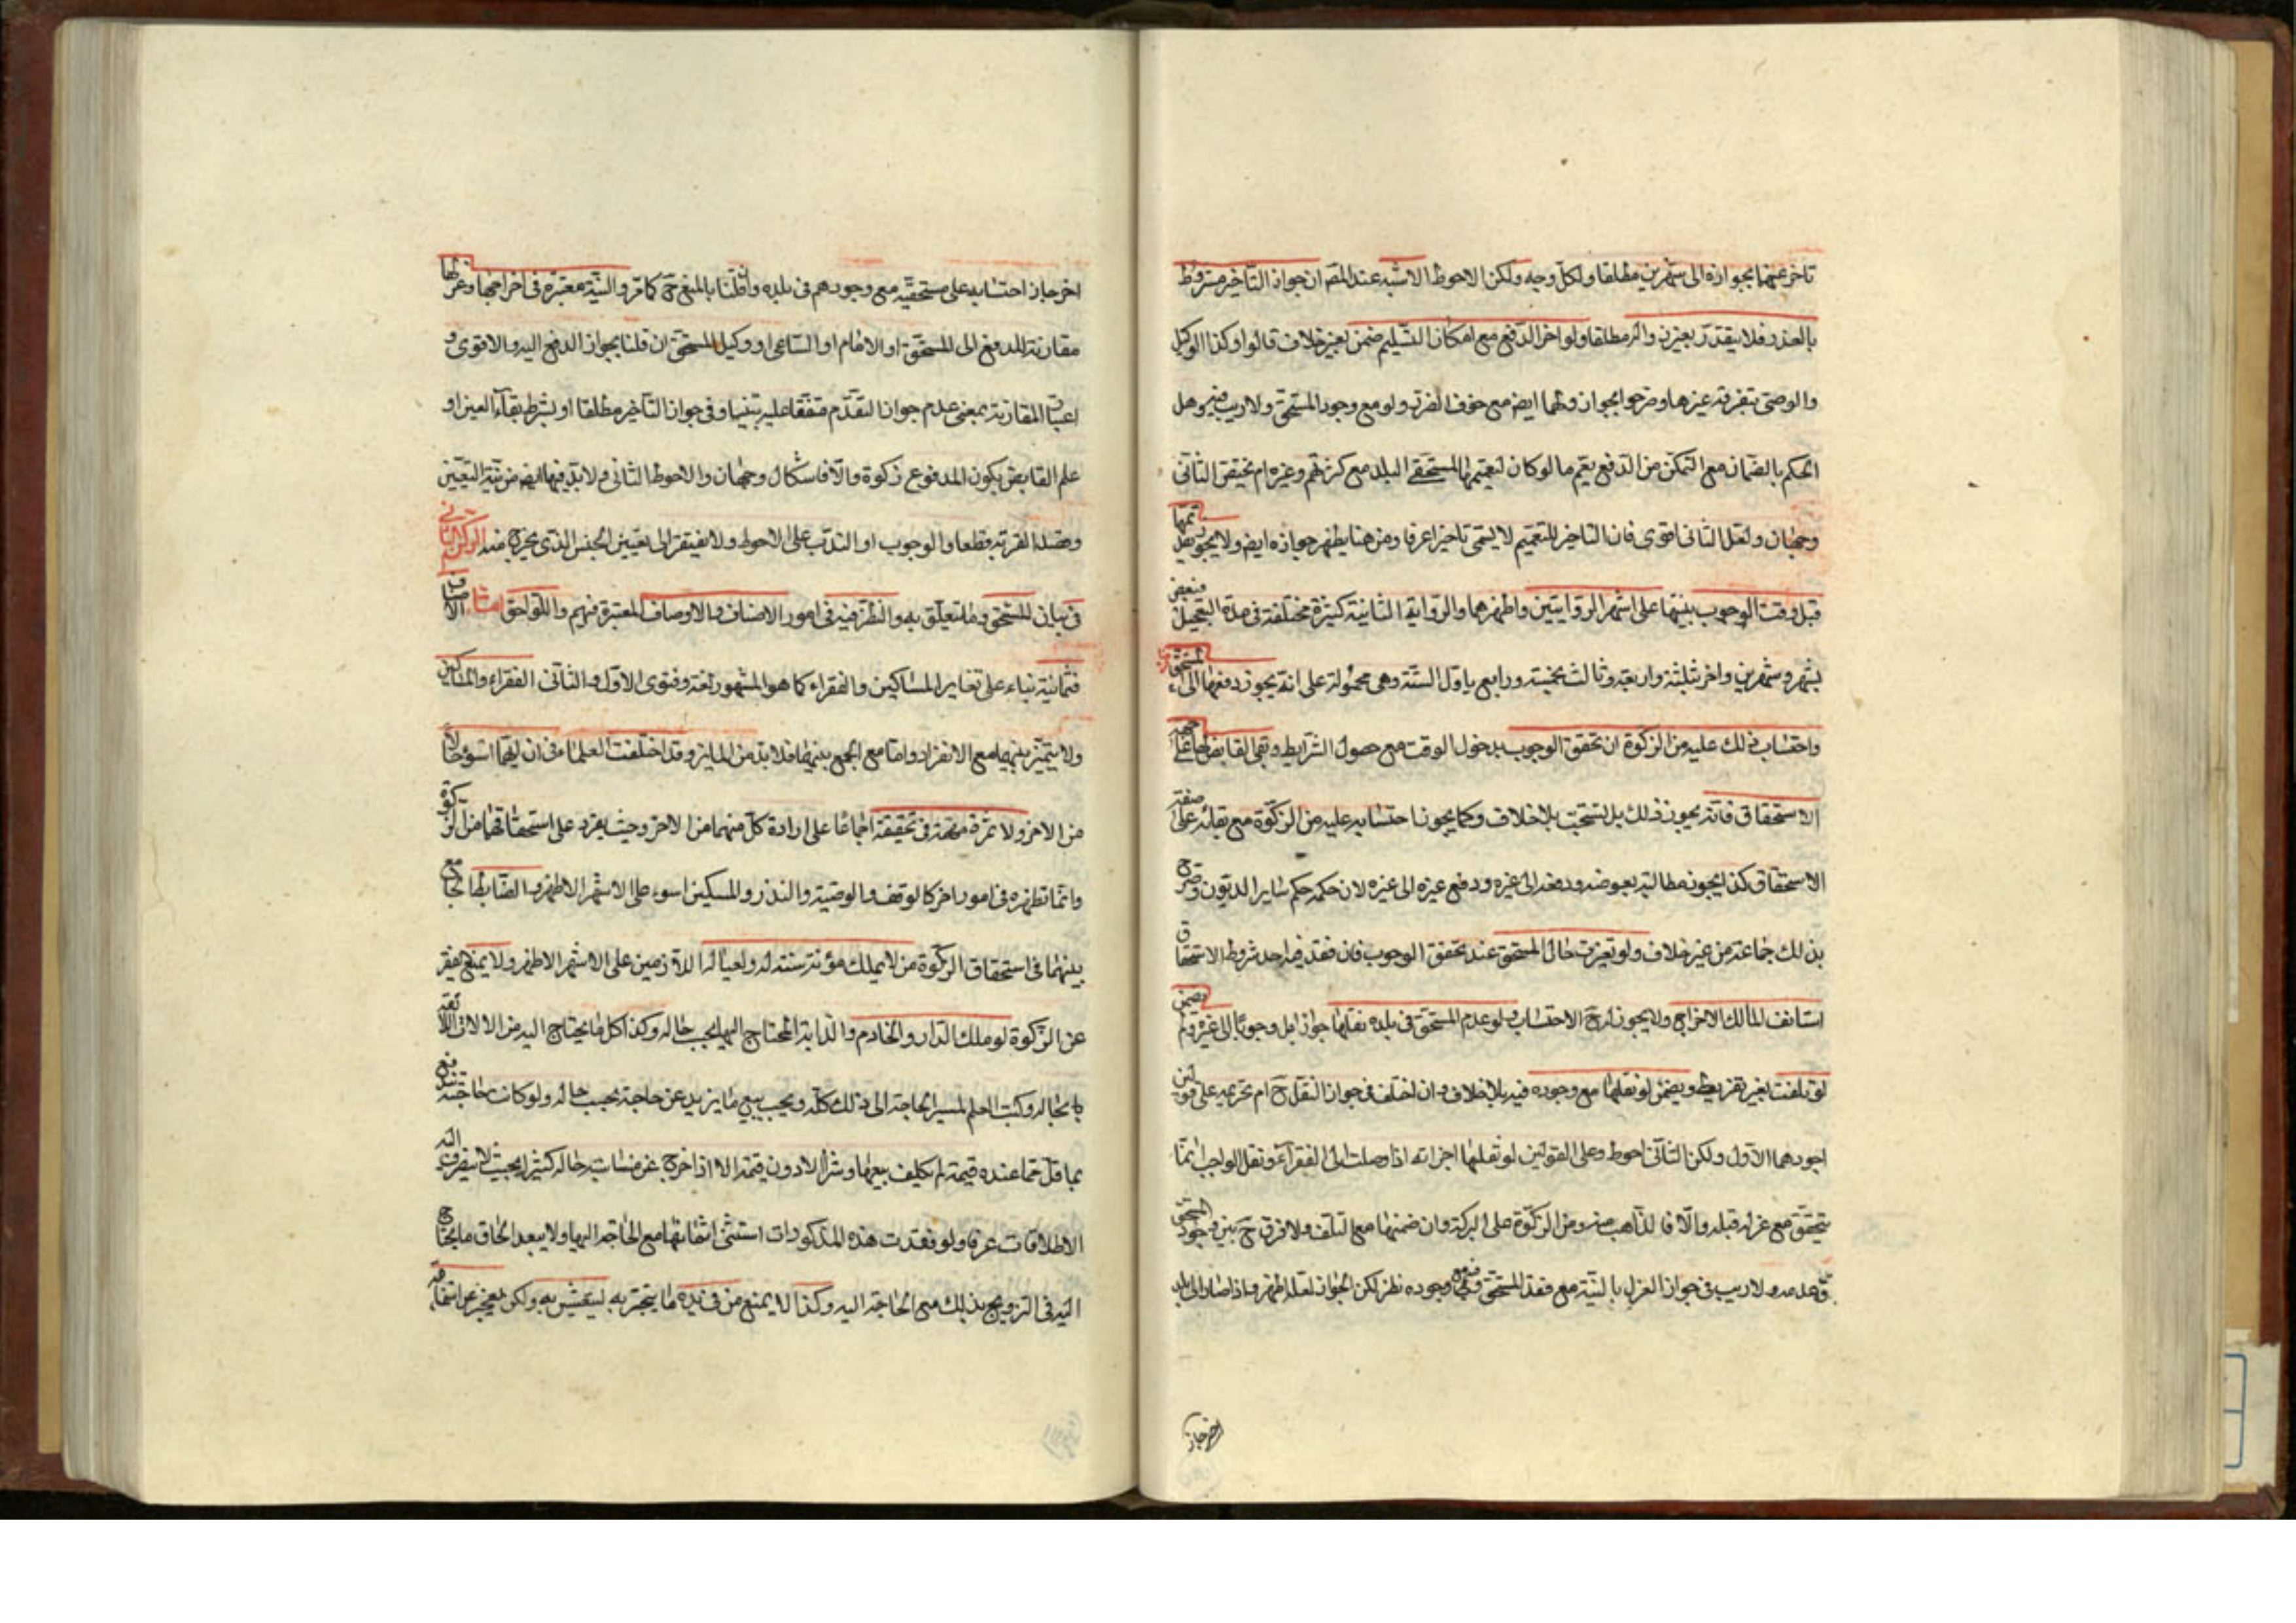 تاخر عنها بجوازه الى شهرين مطلقا ولكل وجه ولكن الاحوط الاشبه عند المصـ ان جواز التاخير مشروط
بالعذر فلا يتقدر بغيره والا لم مطلقا ولو اخر الدفع مع امكان التسليم ضمن بغير خلاف قالوا وكذا الوكيل
والوصى بتفرقة غيرها وصرحوا بجوازه لهما ايضـ مع خوف الضرر ولو مع وجود المستحق ولا ريب فيه وهل
الحكم بالضمان مع التمكن من الدفع يعم ما لو كان لتعميمها لمستحقى البلد مع كثرتهم وغيره ام يختص الثانى
وجهان ولعل الثانى اقوى فان التاخير للتعميم لا يسمى تاخيرا عرفا ومن هنا يظهر جوازه ايضـ ولا يجوز تقديمها
قبل وقت الوجوب بنيتها على اشهر الروايتين واظهرهما والرواية الثانية كثيرة مختلفة فى مدة التعجيل فبعض
بشهر وشهرين واخر بثلثة واربعة وثالث بخمسة ورابع باول السنة وهى محمولة على انه يجوز دفعها الى المستحق
واحتساب ذلك عليه من الزكوة ان تحقق الوجوب بدخول الوقت مع حصول الشرايط وبقى القابض على صفة
الاستحقاق فانه يجوز ذلك بل يستحب بلا خلاف وكما يجوز احتسابه عليه من الزكوة مع بقائه على صفة
الاستحقاق كذا يجوز مطالبته بعوضه ودفعه الى غيره ودفع غيره الى غيره لان حكمه حكم ساير الديون وصرح
بذلك جماعة من غير خلاف ولو تغيرت حال المستحق عند تحقق الوجوب فان فقد فيه احد شروط الاستحقاق
استانف المالك الاخراج ولا يجوز له حـ الاحتساب ولو عدم المستحق فى بلده نقلها جوازا بل وجوبا الى غيره ولم يضمن
لو تلفت بغير تفريط ويضمن لو نقلها مع وجوده فيه بلا خلاف وان اختلف فى جواز النقل حـ ام تحريمه على قولين
اجودهما الاول ولكن الثانى احوط وعلى القولين لو نقلها اجزاته اذا وصلت الى الفقراء ونقل الواجب انما
يتحقق مع عزله قبله والا فالذاهب من غير الزكوة على البركة وان ضمنها مع التلف ولا فرق حـ بين وجود المستحق
وعدمه ولا ريب فى جواز العزل بالنية مع فقد المستحق وفيه مع وجوده نظر لكن الجواز لعله اظهر واذا صار الى بلد
اخر جاز
اخر جاز احتسابه على مستحقيه مع وجودهم فى بلده وان قلنا بالمنع حـ كما مر والنية معتبرة فى اخراجها وعزلها
مقارنة للدفع الى المستحق او الامام او الساعى او وكيل المستحق ان قلنا بجواز الدفع اليه والاقوى و
اعتبار المقارنة بمعنى عدم جواز التقدم متفقا عليه بيننا وفى جواز التاخير مطلقا او بشرط بقاء العين او
علم القابض بكون المدفوع زكوة والا فاشكال وجهان والاحوط الثانى ولا بد فيها ايضـ من نية التعيين
وقصد القربة قطعا والوجوب او الندب على الاحوط ولا يفتقر الى تعيين الجنس الذى يخرج منه الركن الثانى
فى بيان المستحق وما يتعلق به والنظر فيه فى امور الاصناف والاوصاف المعتبرة فيهم واللواحق اما الاصناف
فثمانية بناء على تغاير المساكين والفقراء كما هو المشهور لغة وفتوى الاول والثانى الفقراء والمساكين
ولا يتميز بينهما مع الانفراد واما مع الجمع بينهما فلا بد من المايز وقد اختلفت العلماء فى ان ايهما اسوء حالا
من الاخر ولا ثمرة مهمة فى تحقيقه اجماعا على ارادة كل منهما من الاخر وحيث يفرد على استحقاقهما من الزكوة
وانما تظهر فى امور اخر كالوقف والوصية والنذر والمسكين اسوء على الاشهر الاظهر والضابط الجامع
بينهما فى استحقاق الزكوة من لا يملك مؤنة سنته له ولعياله اللازمين على الاشهر الاظهر ولا يمنع فقير
عن الزكوة لو ملك الدار والخادم والدابة المحتاج اليها بحسب حاله وكذا كل ما يحتاج اليه من الالات اللائقة
بحاله وكتب العلم لمسير الحاجة الى ذلك كله ويجب بيع ما يزيد عن حاجته بحسب حاله ولو كانت حاجته تندفع
بما قل مما عنده قيمة لم يكلف بيعها وشراء الادون قيمة الا اذا خرج عن مناسبة حاله كثيرا بحيث لا ينصرف اليه
الاطلاقات عرفا ولو فقدت هذه المذكورات استثنى اثمانها مع الحاجة اليها ولا يبعد الحاق ما يحتاج
اليه فى التزويج بذلك مع الحاجة اليه وكذا لا يمنع من فى يده ما يتجر به ليتعيش به ولكن يعجز عن استنماء